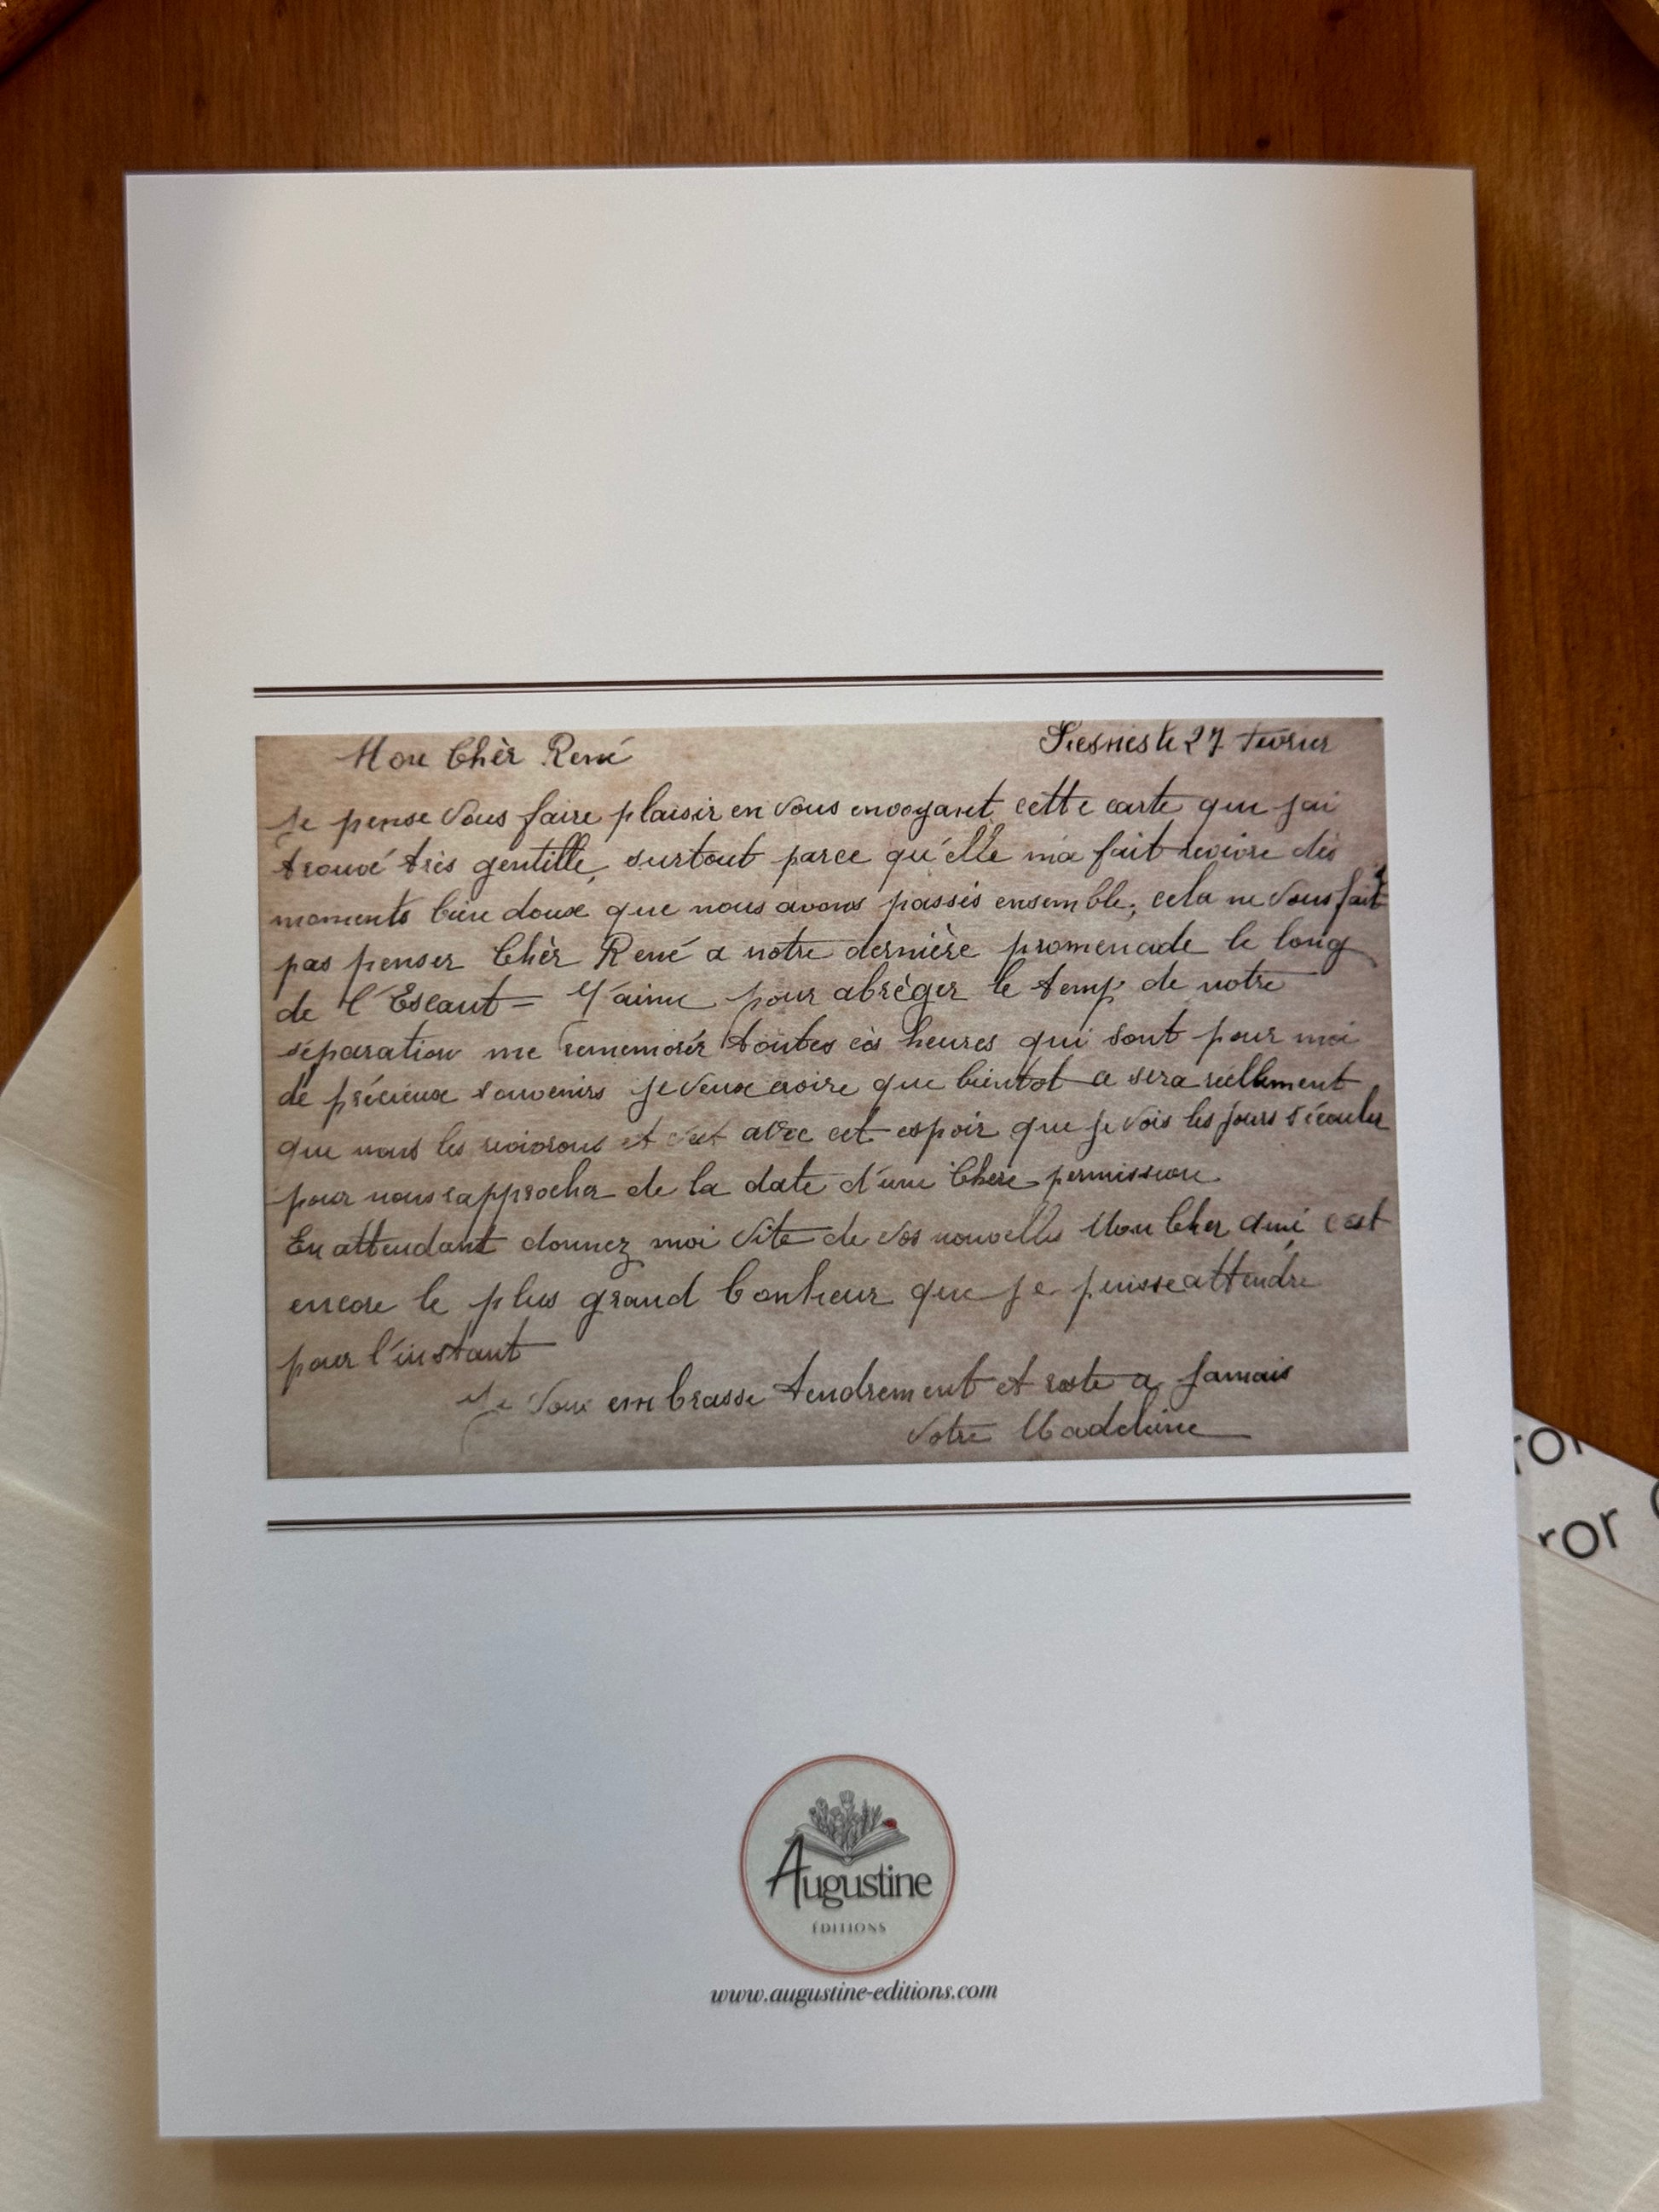 Mon Chèr René
le 27 Février
Je pense Vous faire plaisir en Vous envoyant cette carte que j'ai
trouvé très gentille, surtout parce qu'elle m'a fait revivre des
moments bien doux que nous avons passés ensemble, cela ne Vous fait
pas penser Chèr René a notre dernière promenade le long
de l'Escaut = J'aime pour abrèger le temp de notre
séparation me rememorér toutes ces heures qui sont pour moi
de précieux souvenirs je veux croire que bientot ce sera réellement
que nous les revivrons et c'est avec cet espoir que je vois les jours s'écouler
pour nous rapprocher de la date d'une Chère permission
En attendant donnez moi Vite de Vos nouvelles Mon Cher ami c'est
encore le plus grand bonheur que je puisse attendre
pour l'instant
Je Vous embrasse tendrement et reste a Jamais
Votre Madeleine
Augustine
ÉDITIONS
www.augustine-editions.com
ror